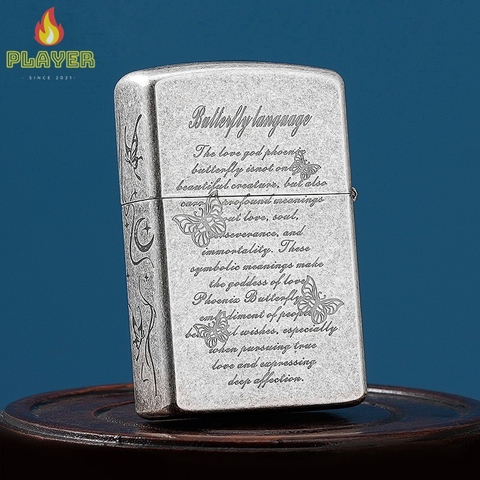 PLAYER
- SINCE 2021-
Butterfly language
The love god phoenix
butterfly isnot only
beautiful creature, but also
profound meanings
love, soul,
and
immortality. These
symbolic meanings make
the goddess of love
Phoenix Butterfly
of people
wishes, especially
when pursuing true
love and expressing
deep affection.